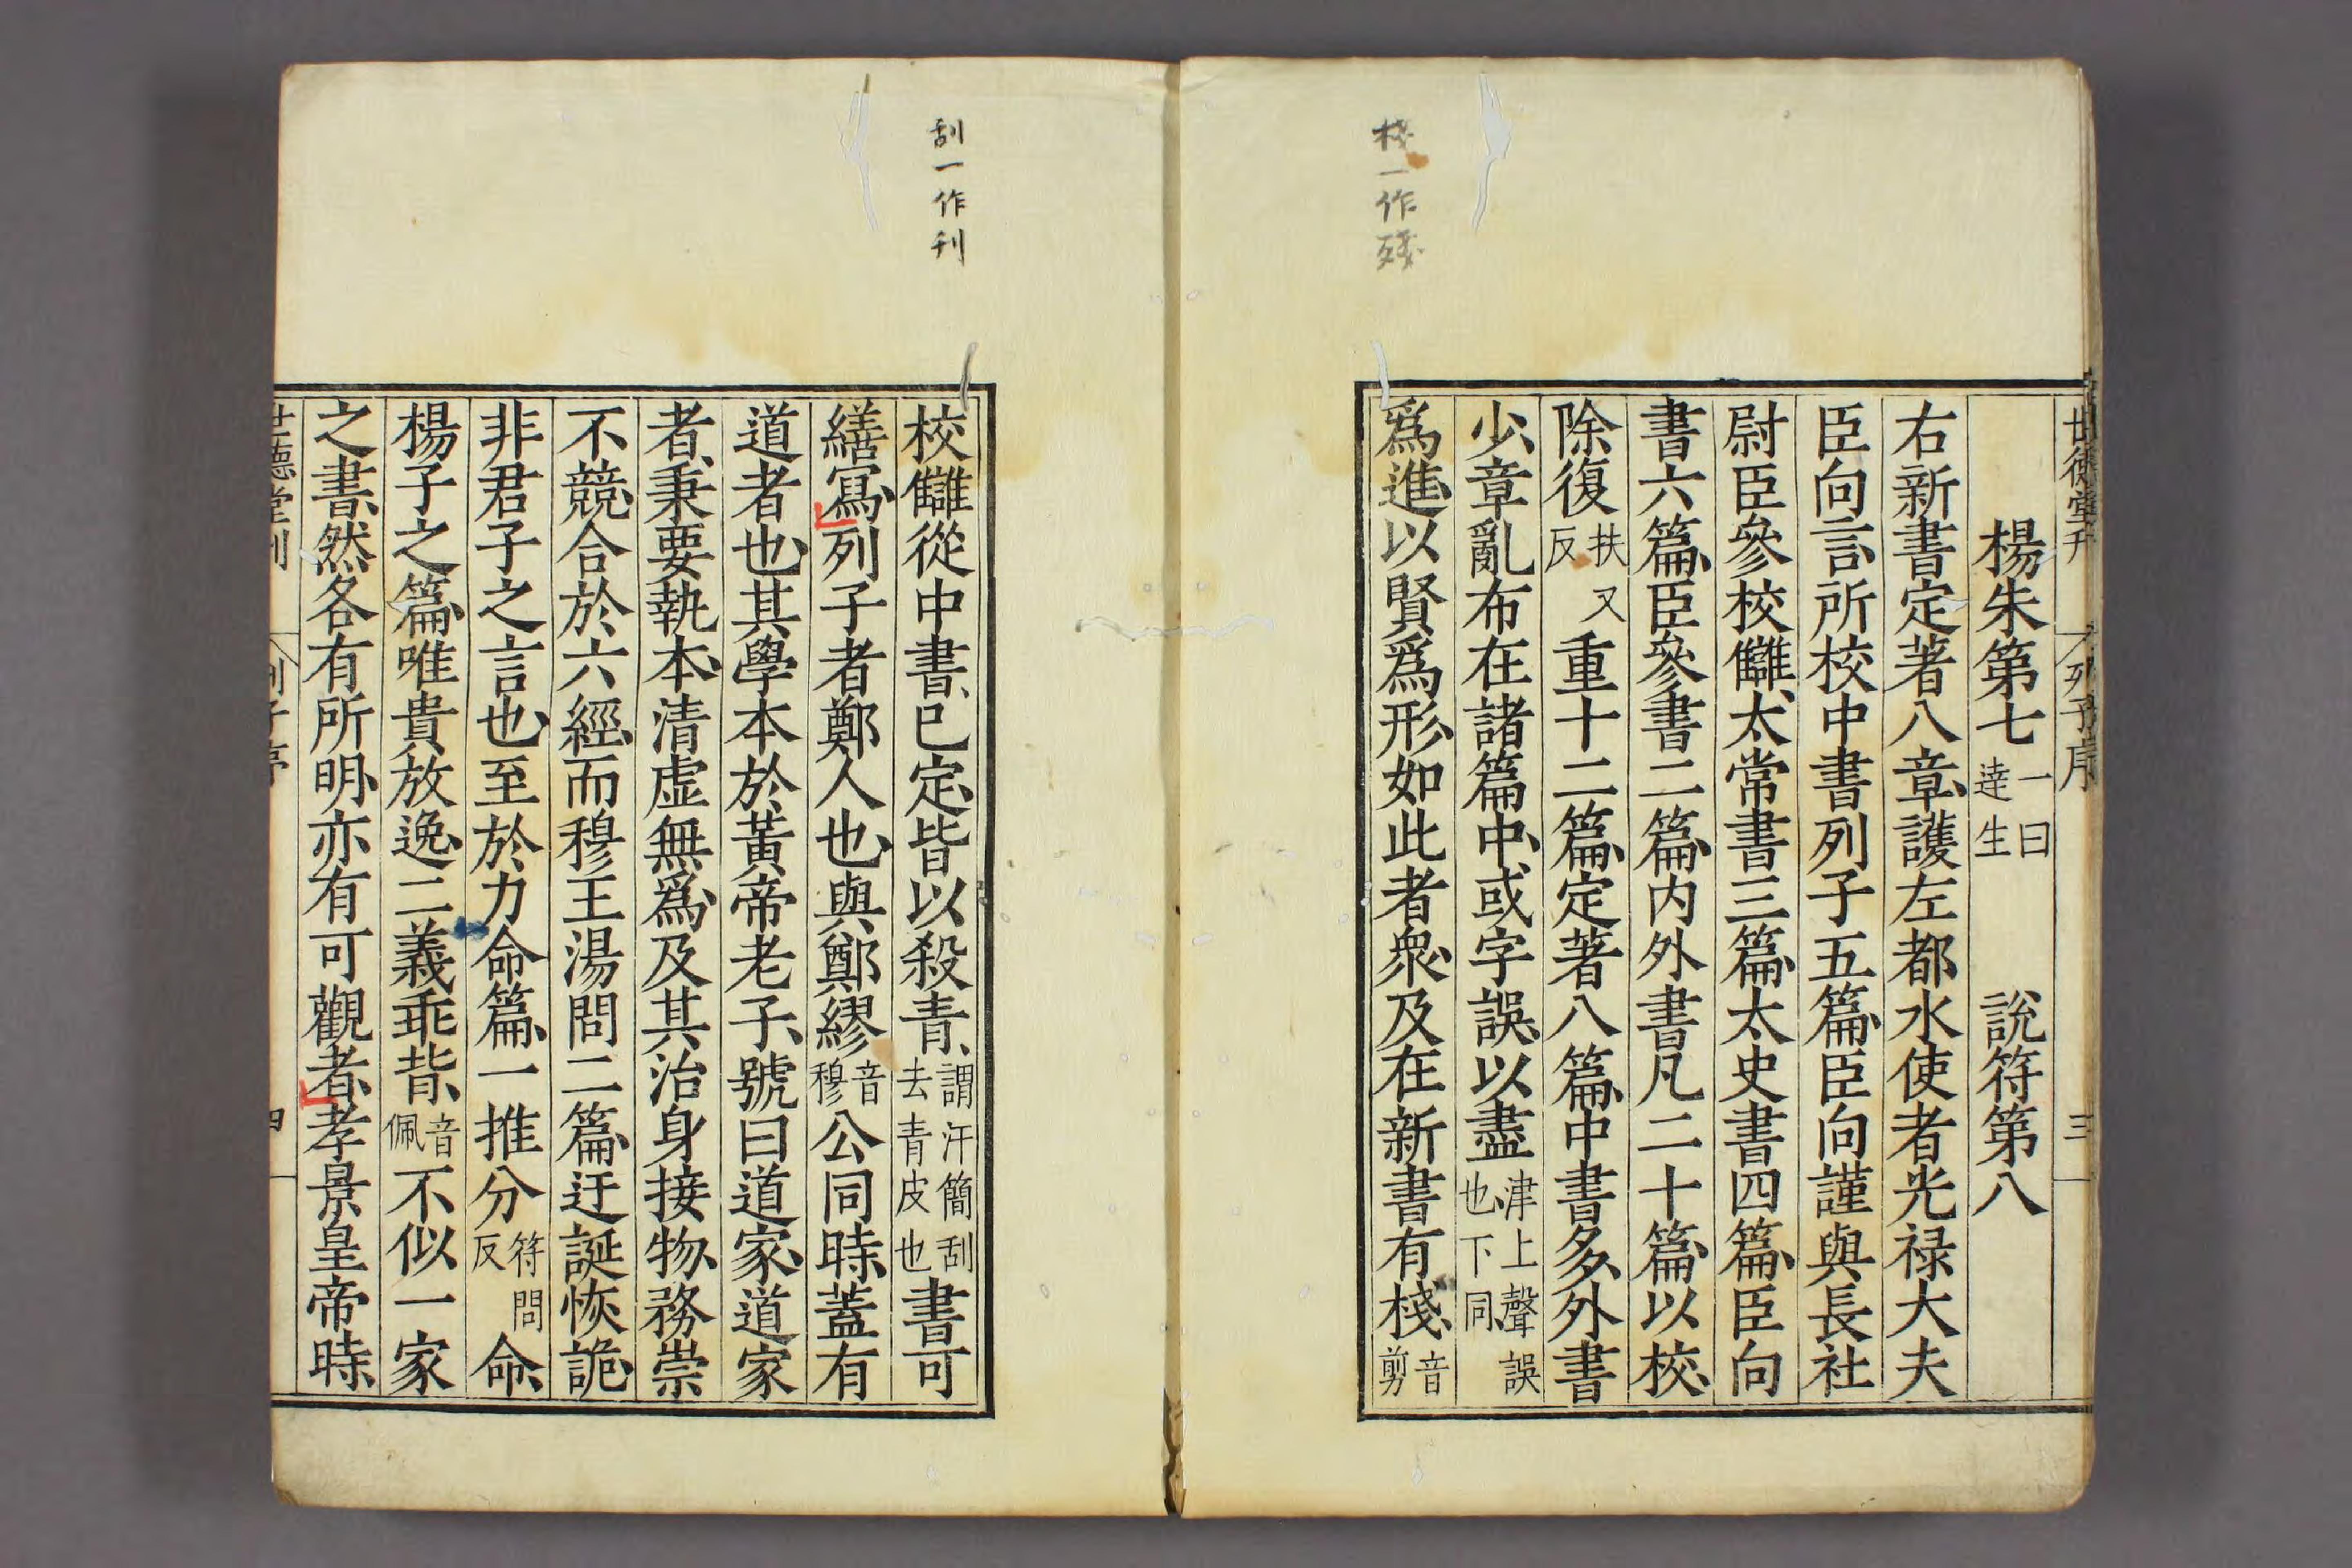 棧一作殘
世德堂刊 列子序 三
楊朱第七一曰達生 說符第八
右新書定著八章護左都水使者光禄大夫
臣向言所校中書列子五篇臣向謹與長社
尉臣參校讎太常書三篇太史書四篇臣向
書六篇臣參書二篇内外書凡二十篇以校
除復扶又反重十二篇定著八篇中書多外書
少章亂布在諸篇中或字誤以盡津上聲誤也下同
爲進以賢爲形如此者衆及在新書有棧音剪
刮一作刊
校讎從中書已定皆以殺青謂汗簡刮去青皮也書可
繕寫列子者鄭人也與鄭繆音穆公同時蓋有
道者也其學本於黃帝老子號曰道家道家
者秉要執本清虛無爲及其治身接物務崇
不競合於六經而穆王湯問二篇迂誕恢詭
非君子之言也至於力命篇一推分符問反命
楊子之篇唯貴放逸二義乖背音佩不似一家
之書然各有所明亦有可觀者孝景皇帝時
世德堂刊 列子序 四